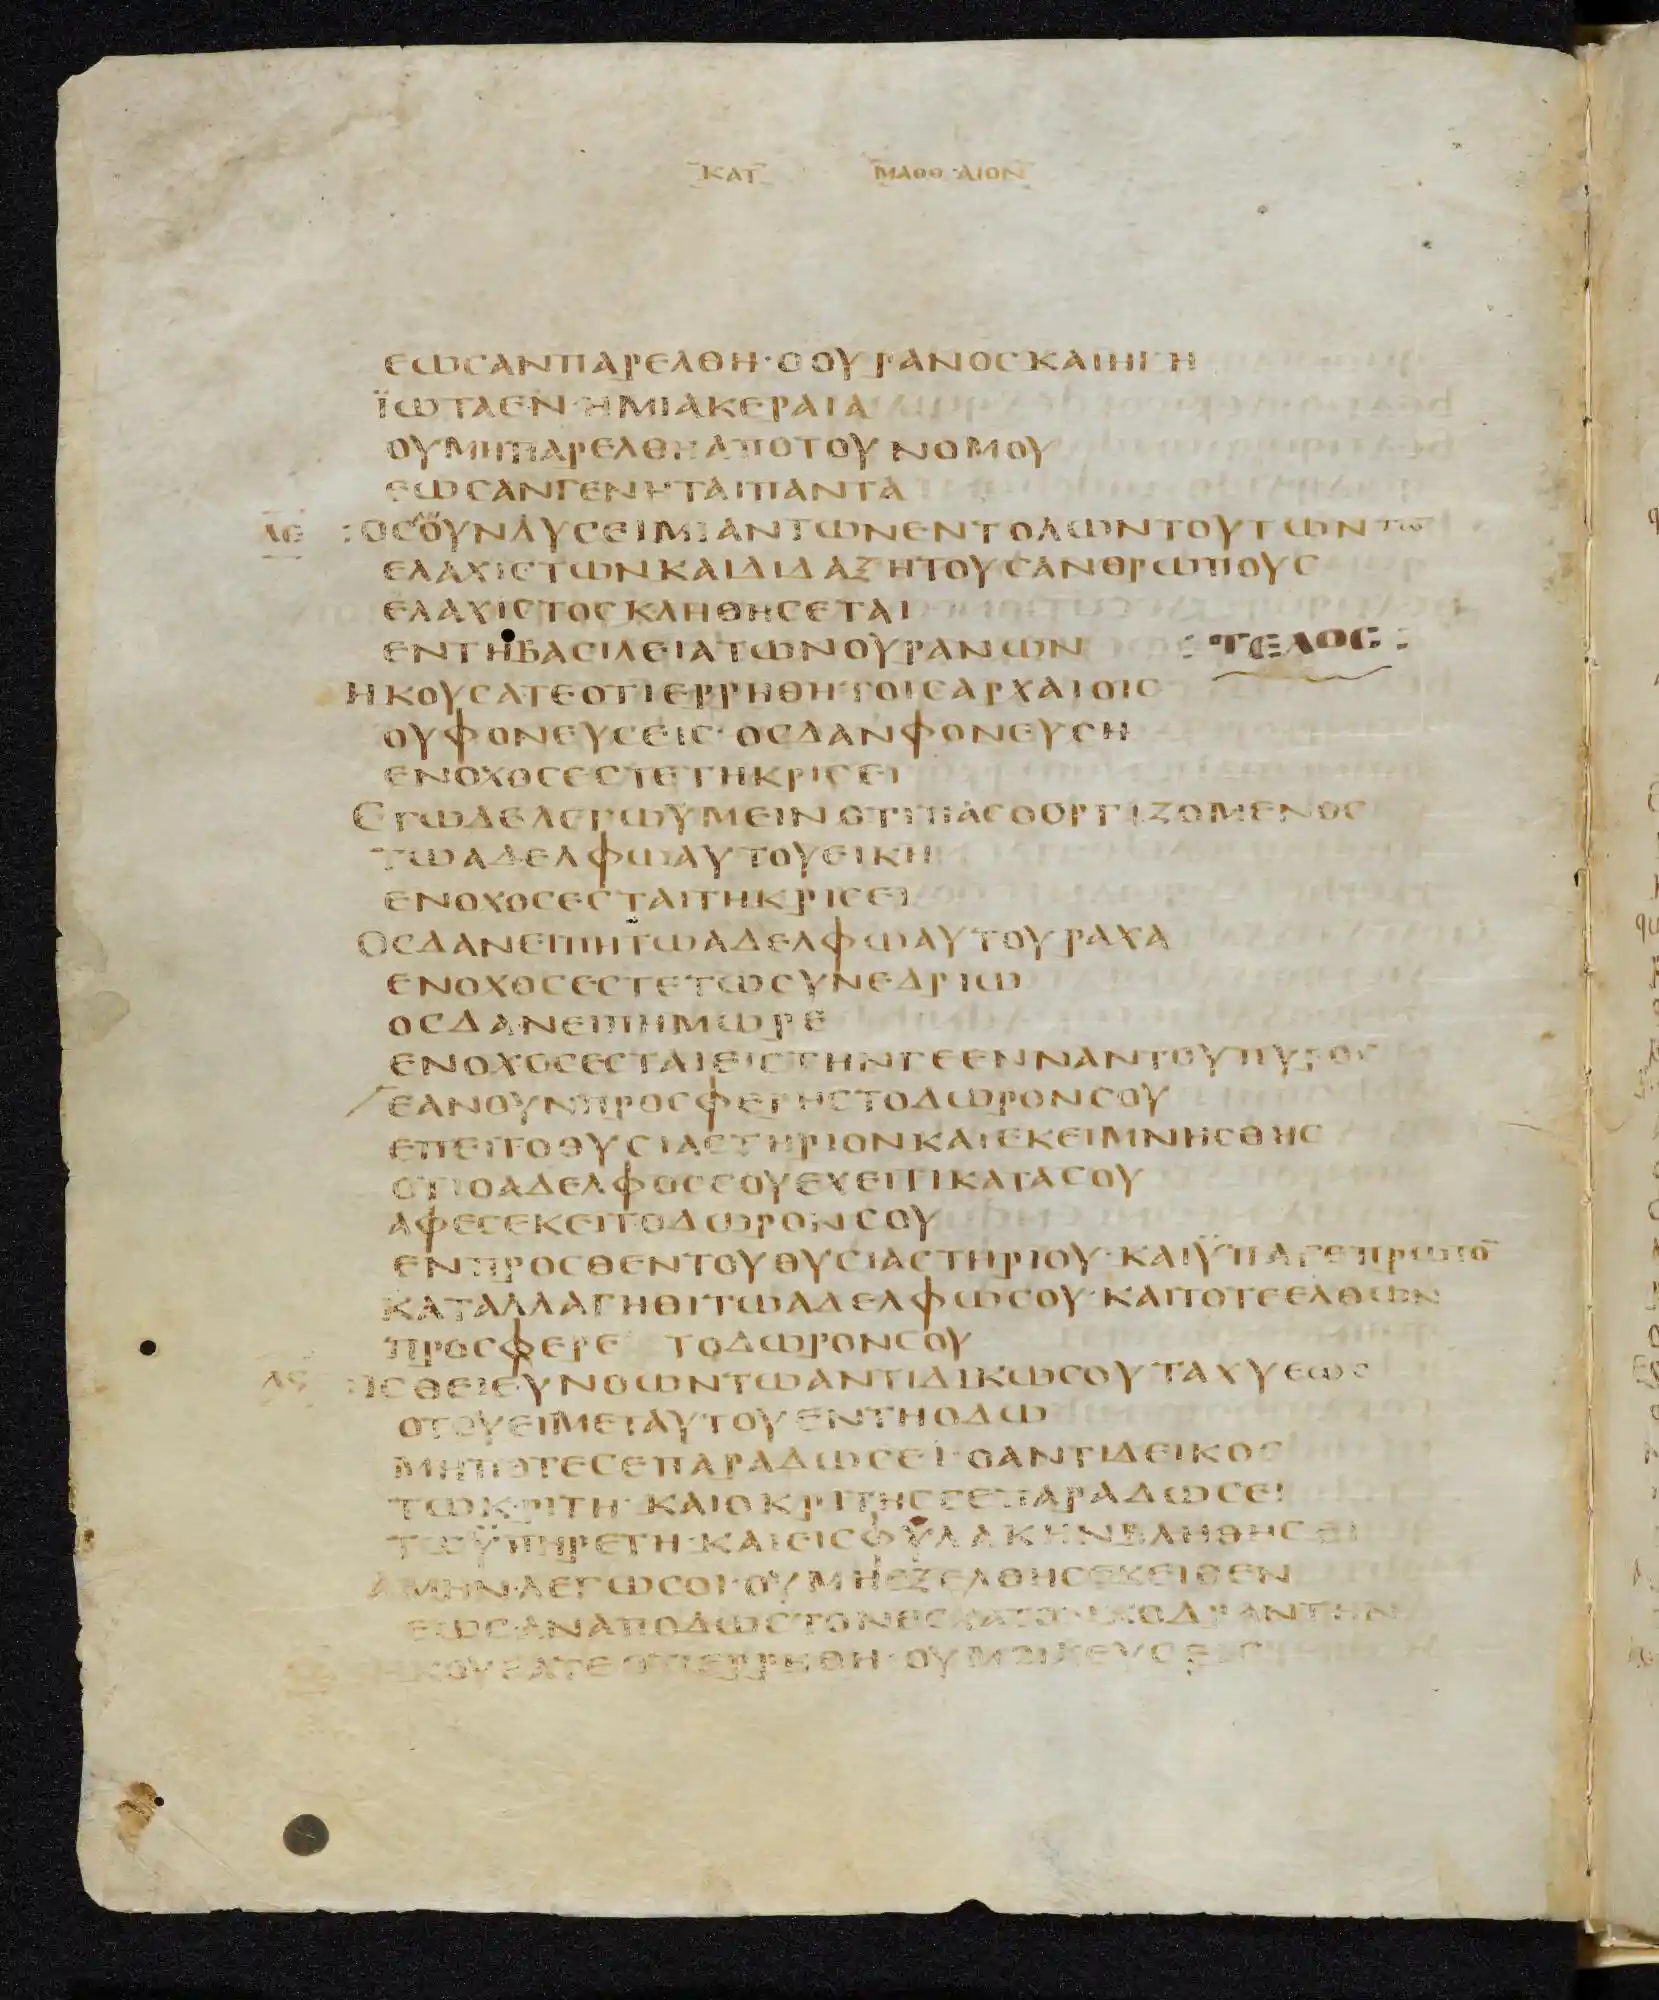 ΚΑΤ ΜΑΘΘΑΙΟΝ
ΕΩΣΑΝΠΑΡΕΛΘΗ·ΟΟΥΡΑΝΟΣΚΑΙΗΓΗ
ΪΩΤΑΕΝ·ΗΜΙΑΚΕΡΑΙΑ
ΟΥΜΗΠΑΡΕΛΘΗΑΠΟΤΟΥΝΟΜΟΥ
ΕΩΣΑΝΓΕΝΗΤΑΙΠΑΝΤΑ
ΛΕ :ΟΣΟΥΝΛΥΣΕΙΜΙΑΝΤΩΝΕΝΤΟΛΩΝΤΟΥΤΩΝΤΩ̅
ΕΛΑΧΙΣΤΩΝΚΑΙΔΙΔΑΞΗΤΟΥΣΑΝΘΡΩΠΟΥΣ
ΕΛΑΧΙΣΤΟΣΚΛΗΘΗΣΕΤΑΙ
ΕΝΤΗΒΑΣΙΛΕΙΑΤΩΝΟΥΡΑΝΩΝ :ΤΕΛΟΣ:
ΗΚΟΥΣΑΤΕΟΤΙΕΡΡΗΘΗ·ΤΟΙΣΑΡΧΑΙΟΙΣ
ΟΥΦΟΝΕΥΣΕΙΣ·ΟΣΔΑΝΦΟΝΕΥΣΗ
ΕΝΟΧΟΣΕΣΤΕΤΗΚΡΙΣΕΙ
ΕΓΩΔΕΛΕΓΩΫΜΕΙΝΟΤΙΠΑΣΟΟΡΓΙΖΟΜΕΝΟΣ
ΤΩΑΔΕΛΦΩΑΥΤΟΥΕΙΚΗ
ΕΝΟΧΟΣΕΣΤΑΙΤΗΚΡΙΣΕΙ
ΟΣΔΑΝΕΙΠΗΤΩΑΔΕΛΦΩΑΥΤΟΥΡΑΧΑ
ΕΝΟΧΟΣΕΣΤΕΤΩΣΥΝΕΔΡΙΩ
ΟΣΔΑΝΕΙΠΗΜΩΡΕ
ΕΝΟΧΟΣΕΣΤΑΙΕΙΣΤΗΝΓΕΕΝΝΑΝΤΟΥΠΥΡΟΣ
ΕΑΝΟΥΝΠΡΟΣΦΕΡΗΣΤΟΔΩΡΟΝΣΟΥ
ΕΠΕΙΤΟΘΥΣΙΑΣΤΗΡΙΟΝΚΑΙΕΚΕΙΜΝΗΣΘΗΣ
ΟΤΙΟΑΔΕΛΦΟΣΣΟΥΕΧΕΙΤΙΚΑΤΑΣΟΥ
ΑΦΕΣΕΚΕΙΤΟΔΩΡΟΝΣΟΥ
ΕΝΠΡΟΣΘΕΝΤΟΥΘΥΣΙΑΣΤΗΡΙΟΥ·ΚΑΙΫΠΑΓΕΠΡΩΤΟ̅
ΚΑΤΑΛΛΑΓΗΘΙΤΩΑΔΕΛΦΩΣΟΥ·ΚΑΙΤΟΤΕΕΛΘΩΝ
ΠΡΟΣΦΕΡΕ ΤΟΔΩΡΟΝΣΟΥ
ΛϚ :ΙΣΘΕΙΕΥΝΟΩΝΤΩΑΝΤΙΔΙΚΩΣΟΥΤΑΧΥΕΩΣ
ΟΤΟΥΕΙΜΕΤΑΥΤΟΥΕΝΤΗΟΔΩ
ΜΗΠΟΤΕΣΕΠΑΡΑΔΩΣΕΙ·ΟΑΝΤΙΔΕΙΚΟΣ
ΤΩΚΡΙΤΗ·ΚΑΙΟΚΡΙΤΗΣΣΕΠΑΡΑΔΩΣΕΙ
ΤΩΫΠΗΡΕΤΗ·ΚΑΙΕΙΣΦΥΛΑΚΗΝΒΛΗΘΗΣΕΙ
ΑΜΗΝ·ΛΕΓΩΣΟΙ·ΟΥΜΗΕΞΕΛΘΗΣΕΚΕΙΘΕΝ
ΕΩΣ·ΑΝΑΠΟΔΩΣΤΟΝΕΣΧΑΤΟΝΚΟΔΡΑΝΤΗΝ
ΗΚΟΥΣΑΤΕΟΤΙΕΡΡΗΘΗ·ΟΥΜΟΙΧΕΥΣΕΙΣ